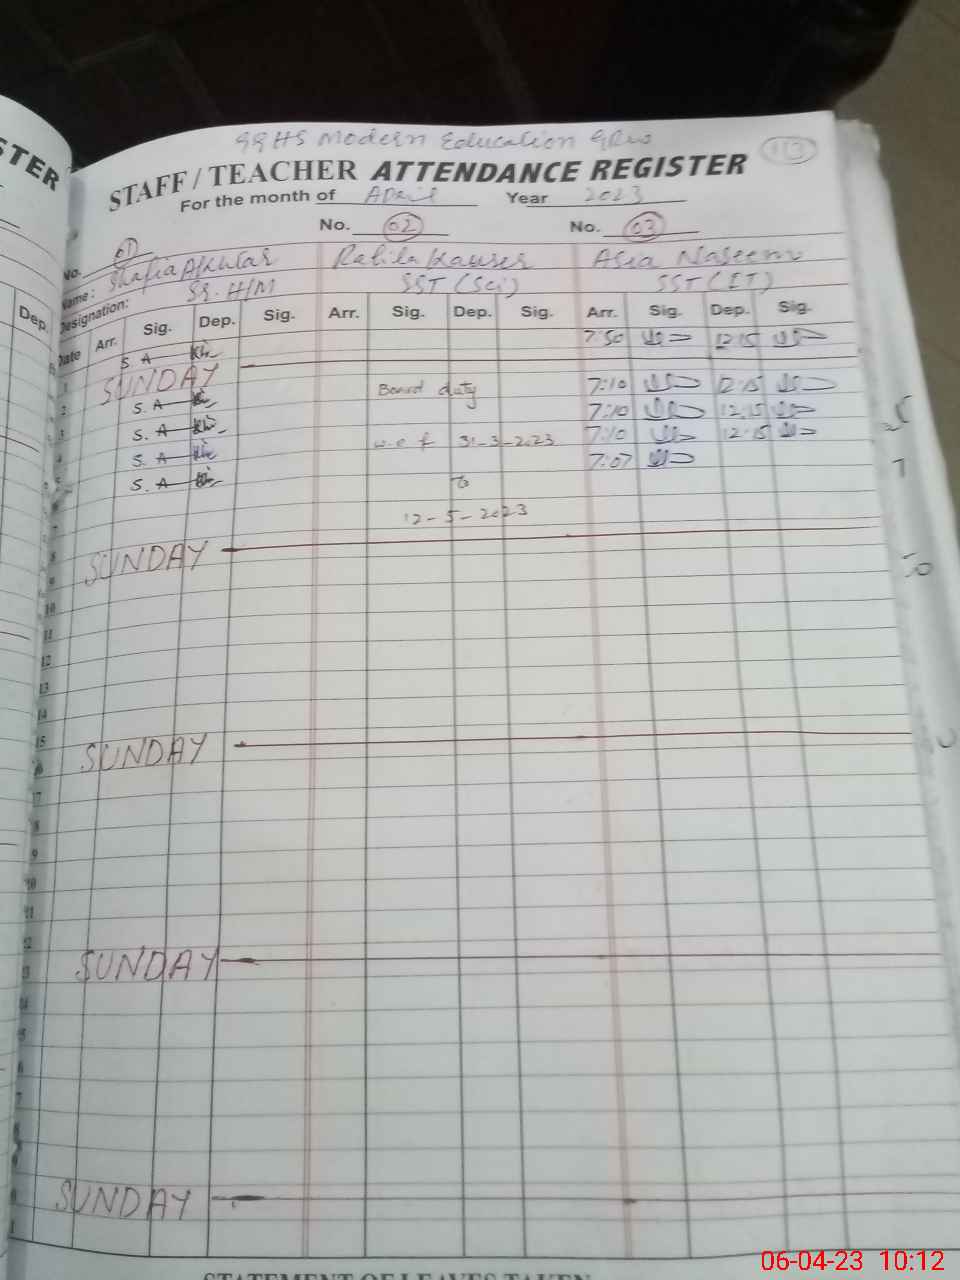 GGHS Modern Education
113
STAFF / TEACHER ATTENDANCE REGISTER
For the month of April Year 2023
No. 01 No. 02 No. 03
Name: Shafia Akhtar Asia Naseem
Designation: Sr. H/M SST (Sci) SST (IT)
Date Arr. Sig. Dep. Sig. Arr. Sig. Dep. Sig. Arr. Sig. Dep. Sig.
1 S. A 7:50 12:15
2 SUNDAY
3 S. A Board duty 7:10 12:15
4 S. A 7:10 12:15
5 S. A w.e.f 31-3-2023 7:10 12:15
6 S. A to 7:07
7 12-5-2023
8
9 SUNDAY
10
11
12
13
14
15
16 SUNDAY
17
18
19
20
21
22
23 SUNDAY
24
25
26
27
28
29
30 SUNDAY
31
STATEMENT OF LEAVES TAKEN
STER
Dep.
06-04-23 10:12